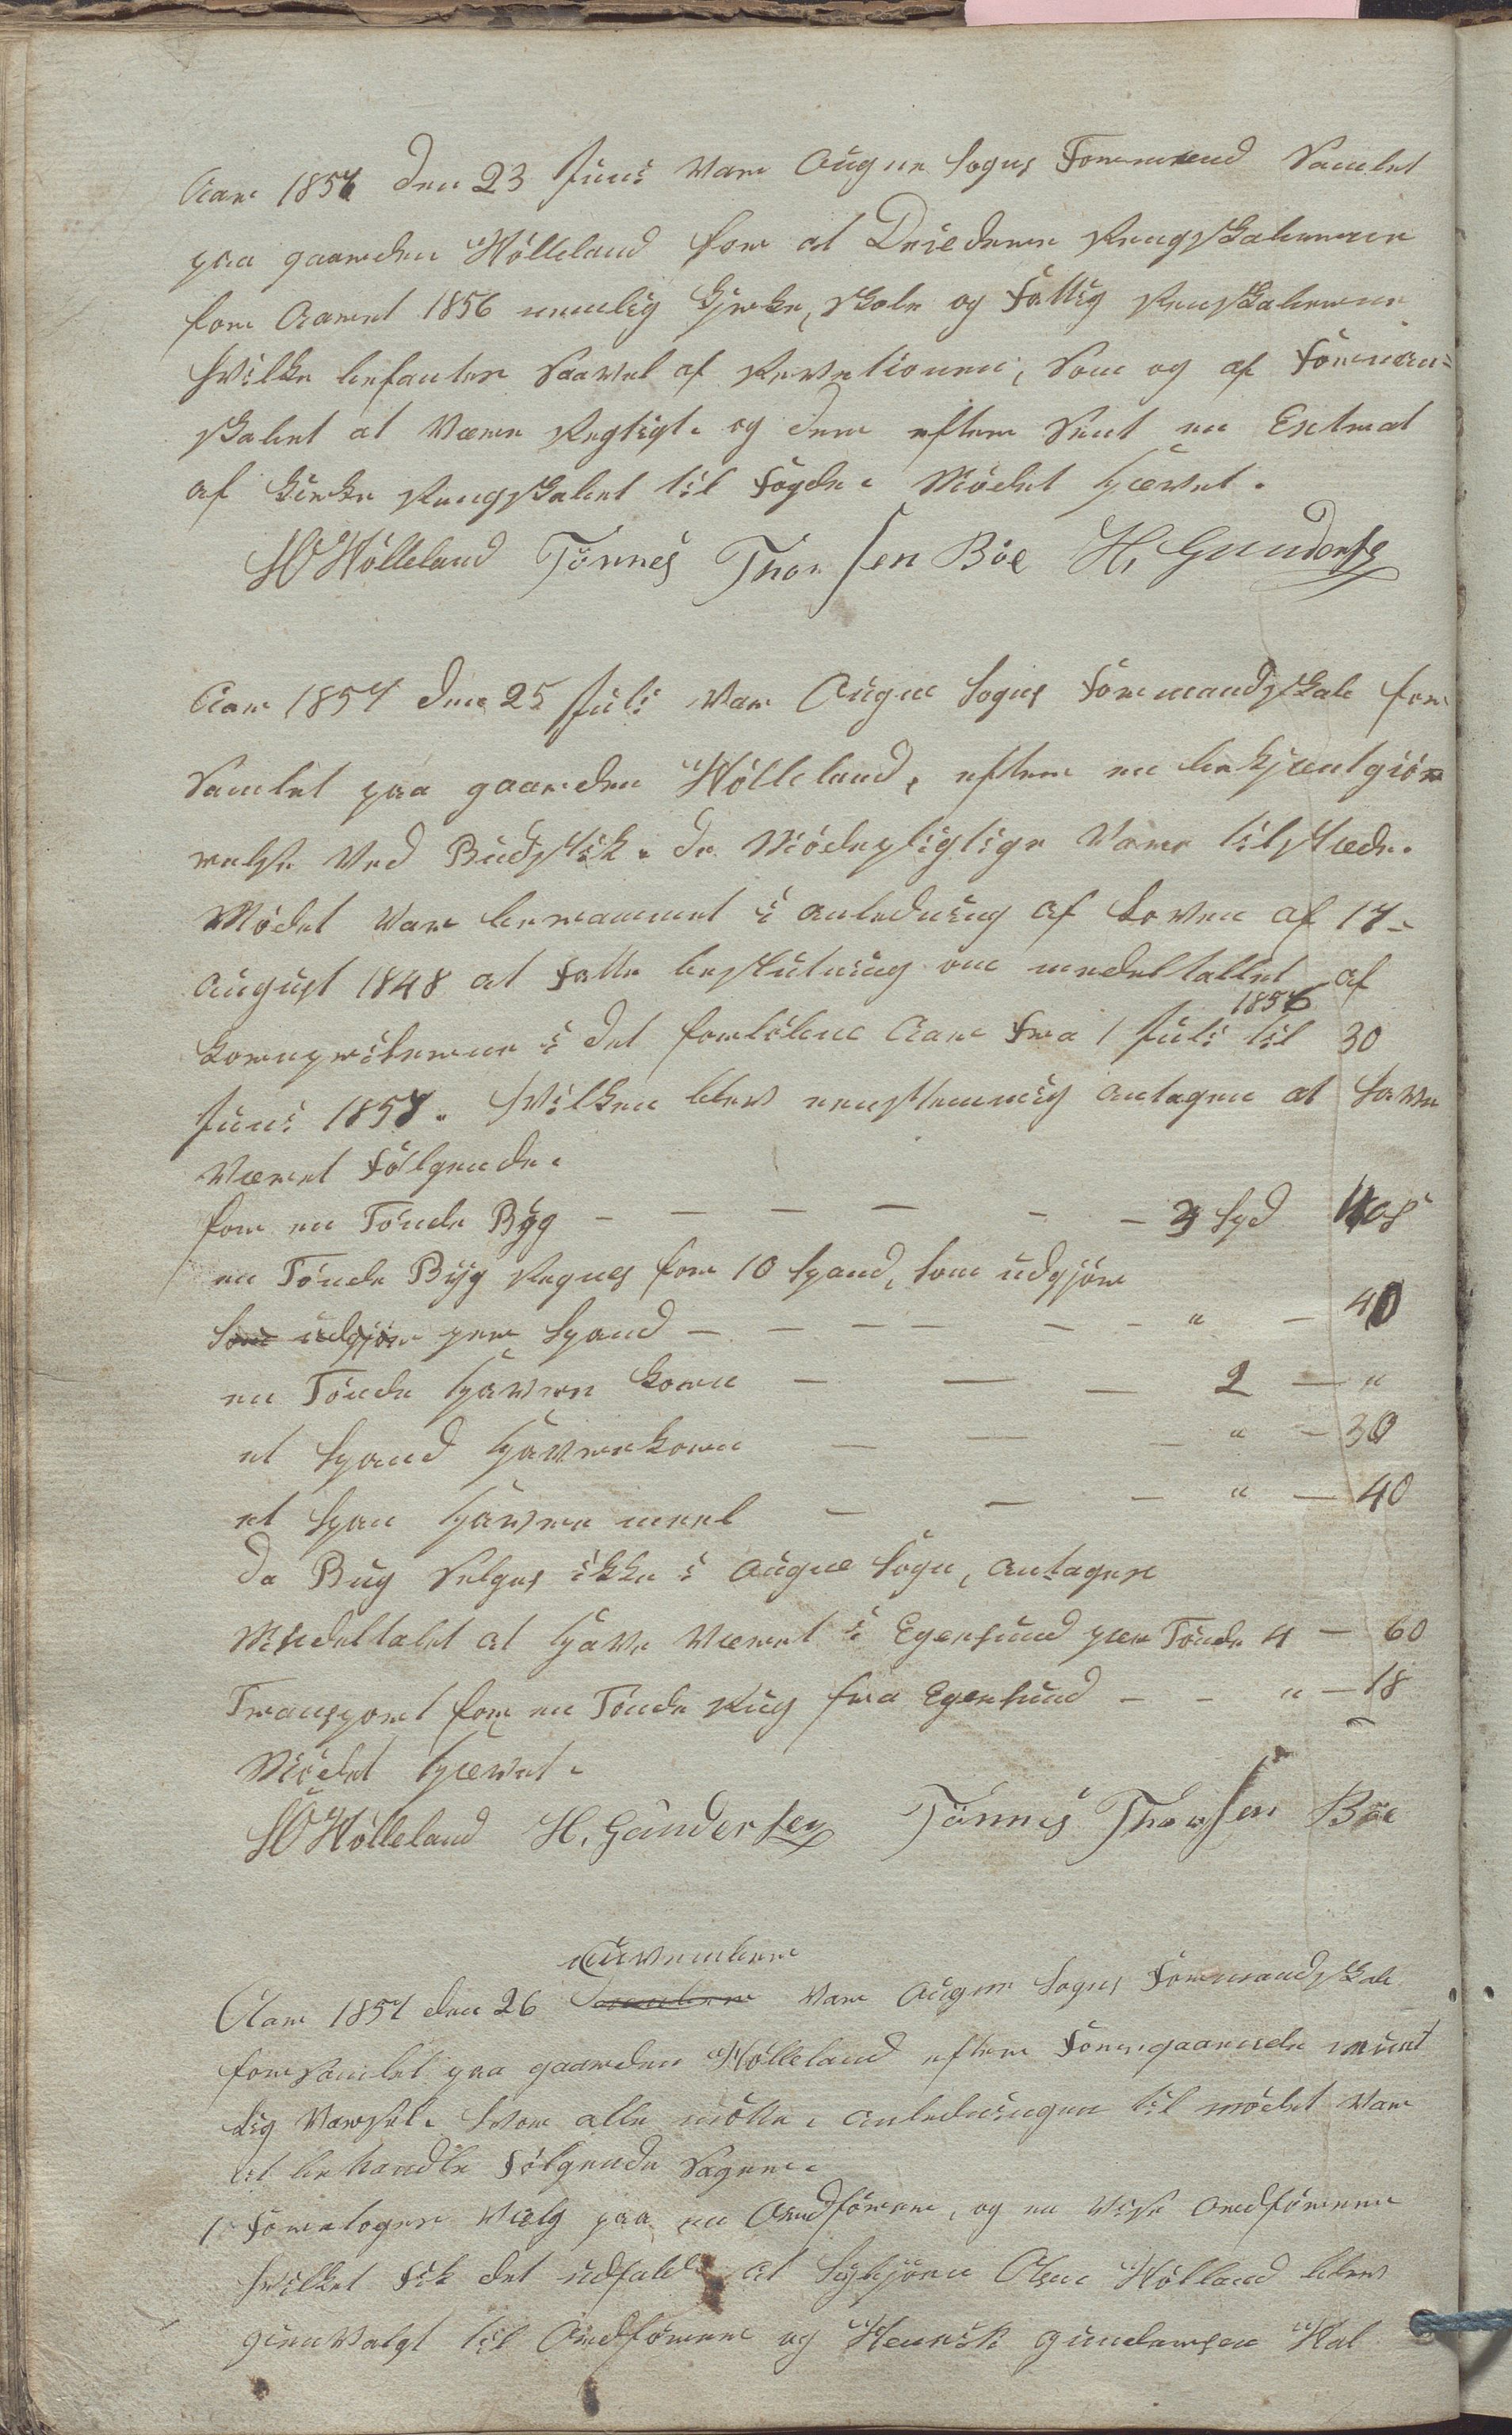 Aar 1857 den 23 Juni var Augne Sogns Formend Samlet
paa gaarden Hölleland for at Deciedere Rengskaberne
for Aaret 1856 nemlig Kirke, Skole og Fattig Renskaberne
hvilke befantes Saavel af Revetionen, Som og af Forman-
skabet at være Regtigt. og der efter Sent en Extrat
af Kirke Rengskabet til Fogde. Mödet hævet.
SO Hölleland Tönnes Thorsen Böe H. Gundersen
Aar 1857 den 25 Juli var Augne Sogns Formandskab for
Samlet paa gaarden Hölleland, efter en bekjentgiör
relse ved Budstik. de Mödepligtige vare tilstæde.
Mödet var berammet i anledning af Loven af 17-
August 1848 at fatte beslutning om medeltallet af
Kornpriserne i det forlöbne Aar fra 1 Juli 1856 til 30
Juni 1857. hvilken blev eenstemmig antagen at have
været Fölgende.
for en Tönde Byg - - - - - - 3 Spd 40 s
en Tönde Byg Regnes for 10 Spand, som udgjör
Som udgjör per Spand - - - - - - " - 40
en Tönde Havre Korn - - - 2 - "
et Spand Havrekorn - - - " - 30
et Span Havre meel - - - " - 40
da Rug Selges ikke i Augne Sogn, antages
Medeltalet at have været i Egersund per Tönde 4 - 60
Transport for en Tönde Rug fra Egersund - - " - 18
Mödet hævet.
SO Hölleland H. Gundersen Tönnes Thorsen Böe
Aar 1857 den 26 November var Augne Sogns Formandskab
forsamlet paa gaarden Hölleland efter Forregaaende munt
lig varsel. hvor alle mötte. anledningen til mödet var
at behandle Fölgende Sager.
1 Foretoges Valg paa en Ordförer, og en Vise Ordförer
hvilket Fik det udfald at Sigbjörn Olsen Hölland blev
gienvalgt til Ordförer og Henrik Gundersen Hol